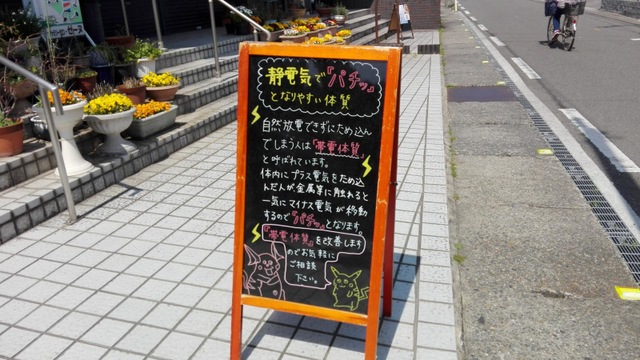 静電気で『パチッ』
となりやすい体質
自然放電できずにため込ん
でしまう人は『帯電体質』
と呼ばれています。
体内にプラス電気をため込
んだ人が金属等に触れると
一気にマイナス電気が移動
するので『パチッ』となります。
『帯電体質』を改善します
のでお気軽に
ご相談
下さい。